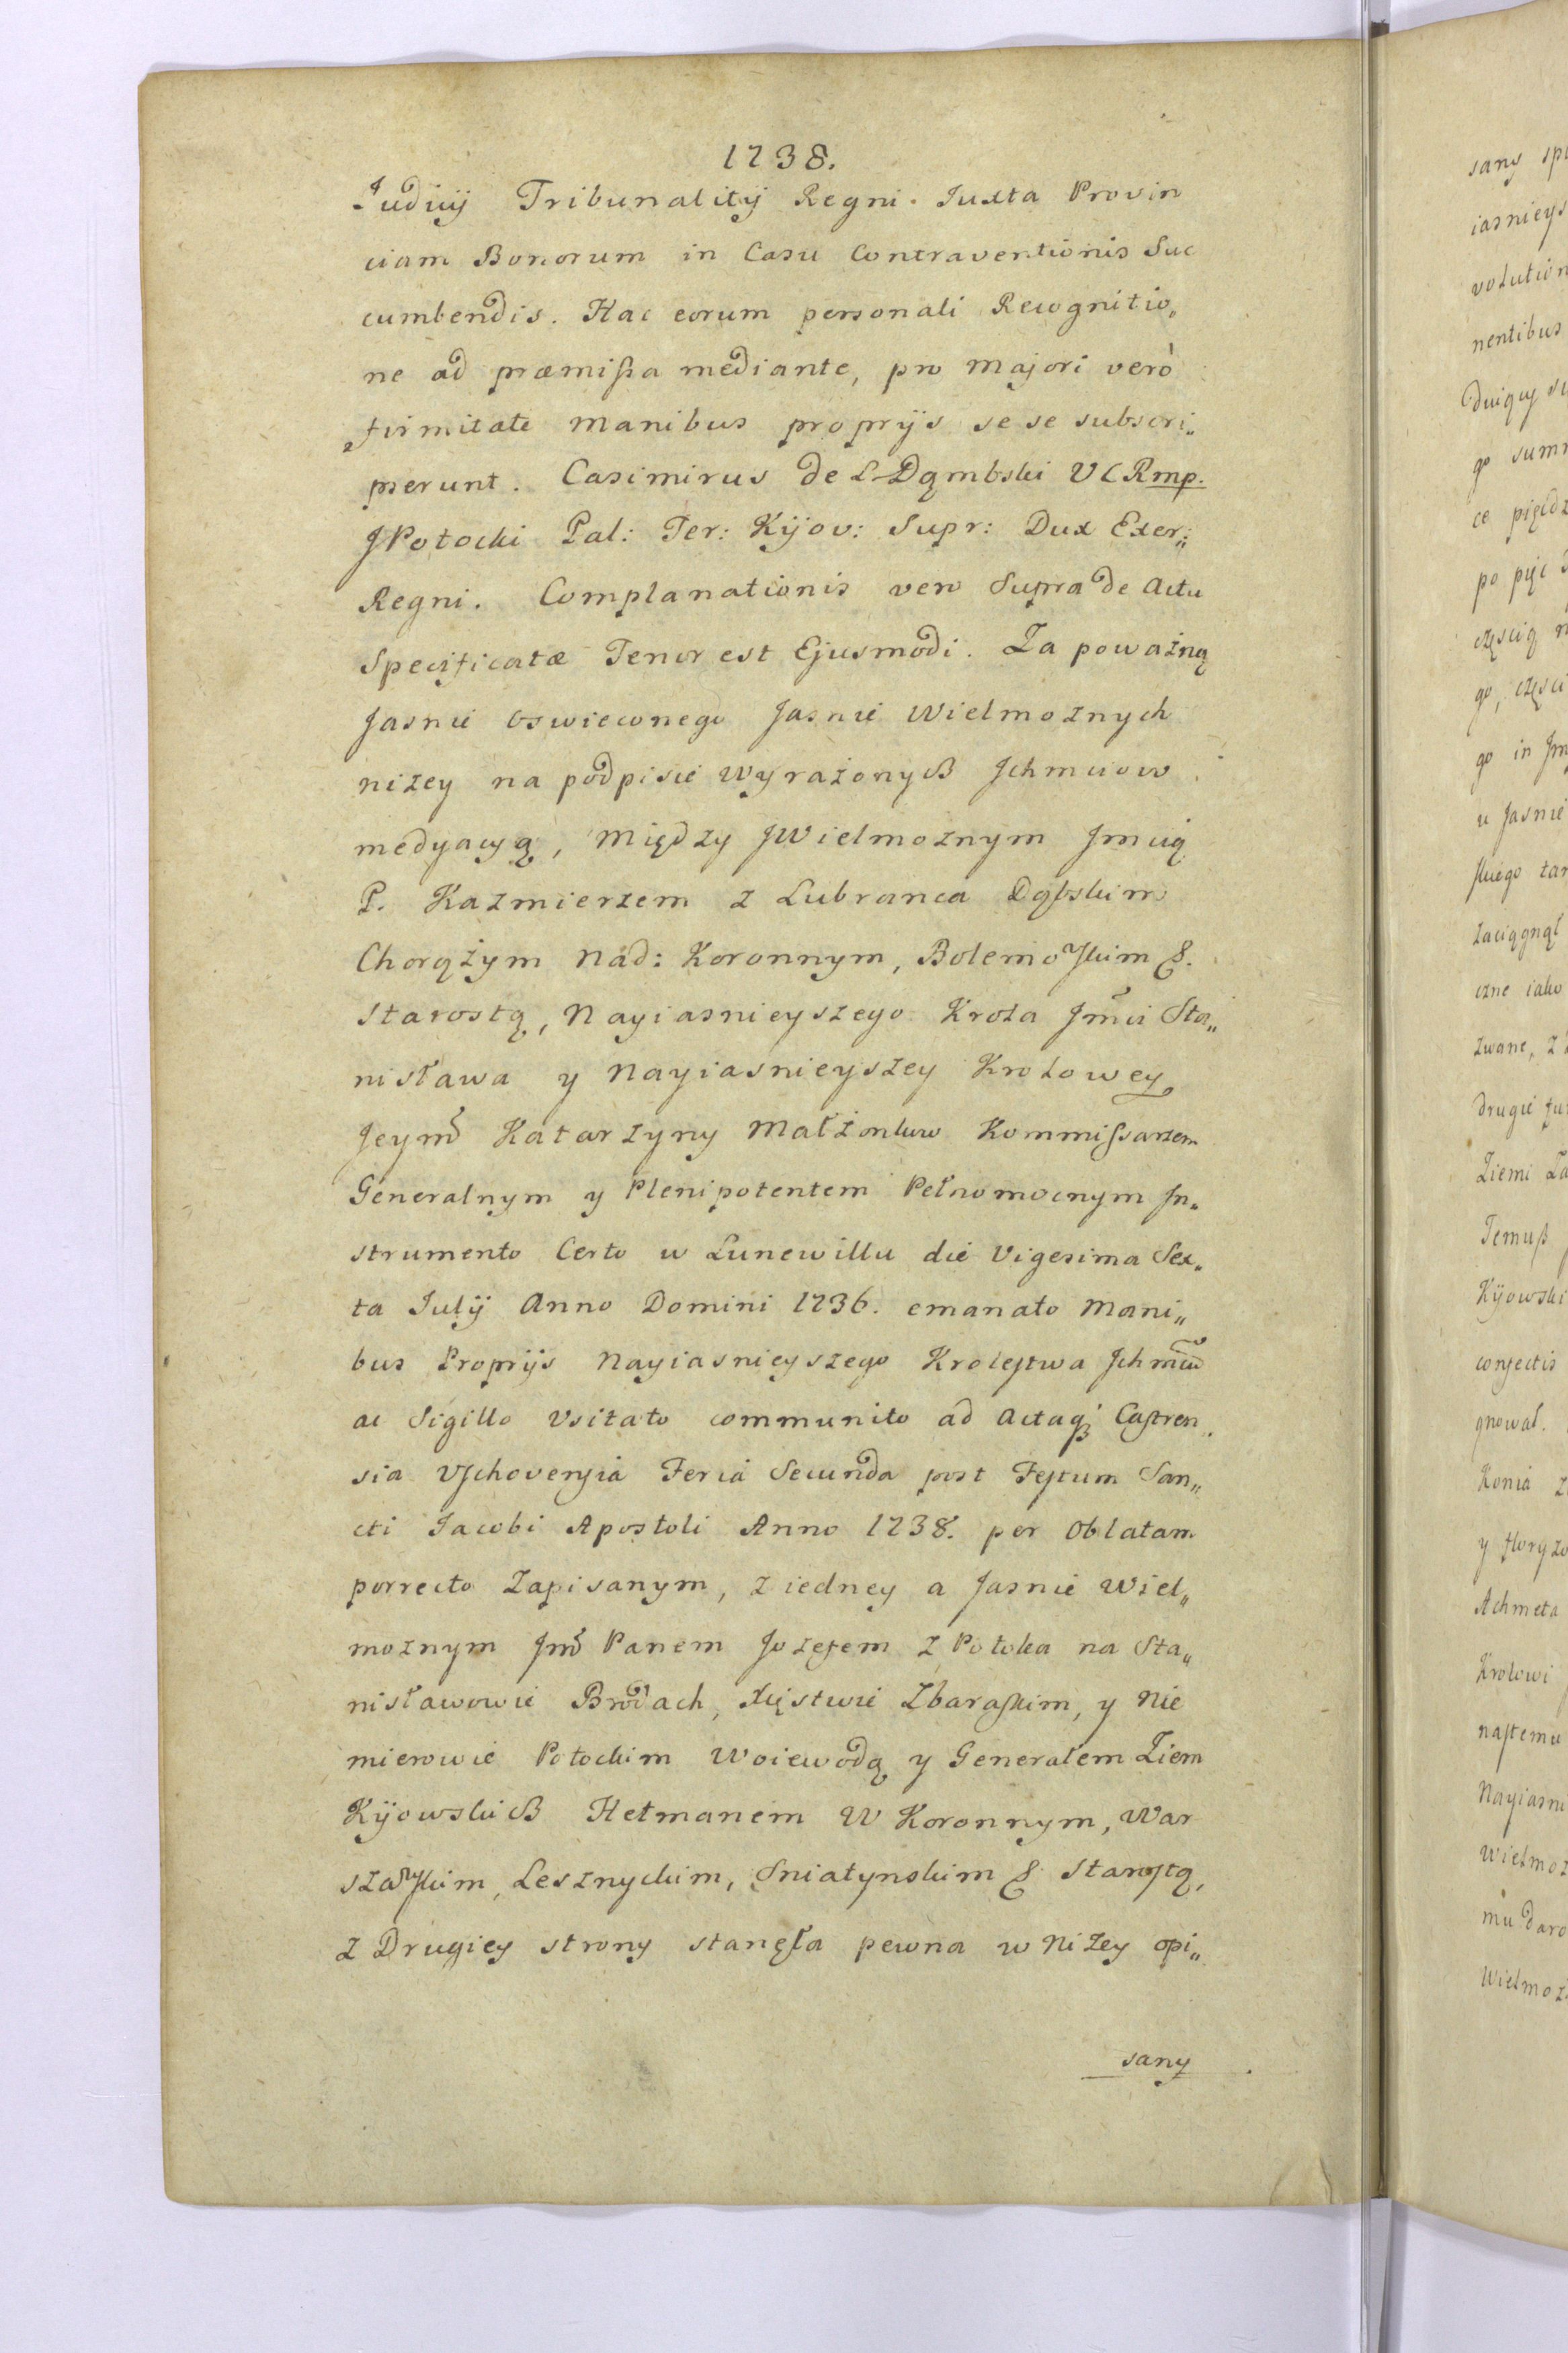 1738.
Iudicij Tribunalitij Regni. Iuxta Provin
ciam Bonorum in Casu Contraventionis Suc
cumbendis. Hac eorum personali Recognitio„
ne ad præmissa mediante, pro majori verò
firmitate manibus proprijs se se subscri„
pserunt. Casimirus de L Dąmbski VCRmp.
JPotocki Pal: Ter: Kijov: Supr: Dux Exer:„
Regni. Complanationis vero Supra de Actu
Specificatæ Tenor est Ejusmodi. Za poważną
Jasnie Oswieconego Jasnie Wielmoznych
nizey na podpisie Wyrażonych Ichmciow
medyacyą, Między JWielmoznym Jmcią
P. Kazmierzem z Lubranca Dąbskim
Chorążym Nad: Koronnym, Bolemowskim &.
Starostą, Nayiasnieyszego Krola Jmci Sta„
nisława y Nayiasnieyszey Krolowey
Jeymć Katarzyny Małżonkow Kommissarzem
Generalnym y Plenipotentem Pełnomocnym In„
strumento Certo w Lunewillu die Vigesima Sex„
ta Iulij Anno Domini 1736. emanato Mani„
bus Proprijs Nayiasnieyszego Krolestwa Ichmciow
ac Sigillo Usitato communito ad Actaq; Castren
sia Vschovensia Feria Secunda post Festum San„
cti Iacobi Apostoli Anno 1738. per Oblatam
porrecto Zapisanym, z iedney a Jasnie Wiel„
moznym Jmć Panem Jozefem z Potoka na Sta„
nisławowie Brodach, Xięstwie Zbaraskim, y Nie
mierowie Potockim Woiewodą y Generałem Ziem
Kijowskich Hetmanem W Koronnym, War
szawskim, Lesznyckim, Sniatynskim & Starostą,
z Drugiey strony stanęła pewna w Nizey opi„
sany
sany
iasnieys
volution
nentibus
go
ce
po pięc
częscią
go, częsci
go in
u Jasnie
skiego
zaciągnął
czne iako
zwane, z
drugie
Ziemi
Kijowski
confectis
gnował.
Konia
y
Achmeta
Krolowi
nastemu
Nayiasni
Wielmoz
mu daro
Wielmoz